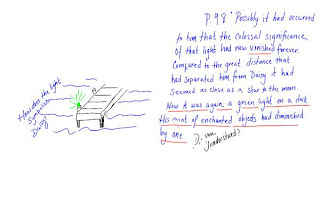 P. 98 "Possibly it had occurred
to him that the colossal significance
of that light had now vanished forever.
Compared to the great distance that
had separated him from Daisy it had
seemed as close as a star to the moon.
Now it was again a green light on a dock
His count of enchanted objects had diminished
by one.
Do you
understand?
How does the light
Symbolize
Daisy